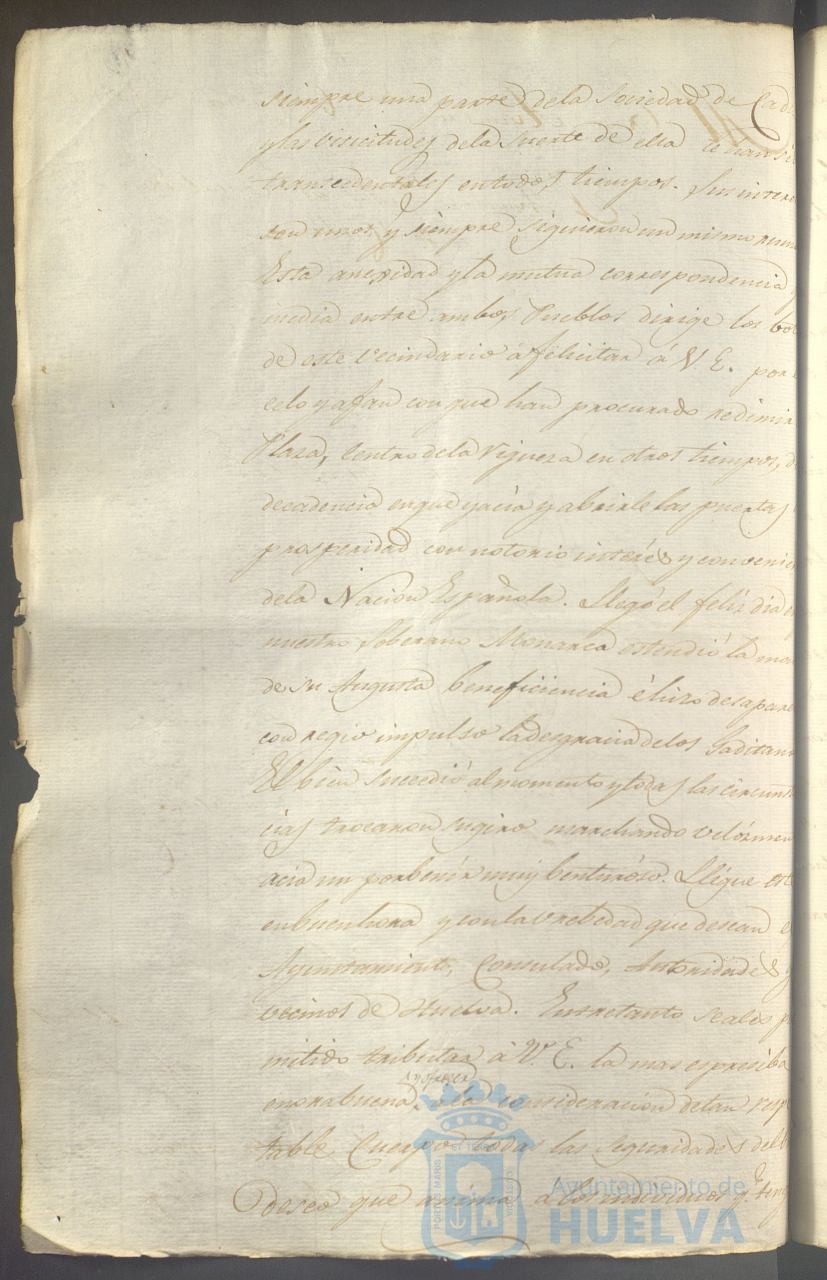 siempre una parte dela Sociedad de Cad
y las vicicitudes dela Suerte de ella le han si
trancedentales en todos tiempos. Sus intere
son unos y siempre siguieron un mismo rum
Esta anexidad y la mutua correspondencia
media entre ambos Pueblos dirige los vo
de este vecindario á felicitar á V. E. por
celo y afan con que han procurado redimir
Plaza, Centro dela riqueza en otros tiempos, d
decadencia enque yacia y abrirle las puertas
prosperidad con notorio interés y convenie
dela Nacion Española. Llegó el feliz dia
nuestro Soberano Monarca estendió la ma
de su Augusta beneficiencia é hizo desapare
con regio impulso la desgracia delos Gaditano
El bien sucedió al momento y todas las circuns
cias trocaron su giro marchando velózmen
acia un porbenir muy benturoso. Llegue est
enbuenhora y con la brebedad que desean e
Ayuntamiento, Consulado, Autoridades y
vecinos de Huelva. Entretanto seales p
mitido tributar á V. E. la mas espresiba
enorabuena, y ofrecer á la consideracion de tan resp
table Cuerpo todas las seguridades del
deseo que anima á los individuos q.e
Ayuntamiento de
HUELVA